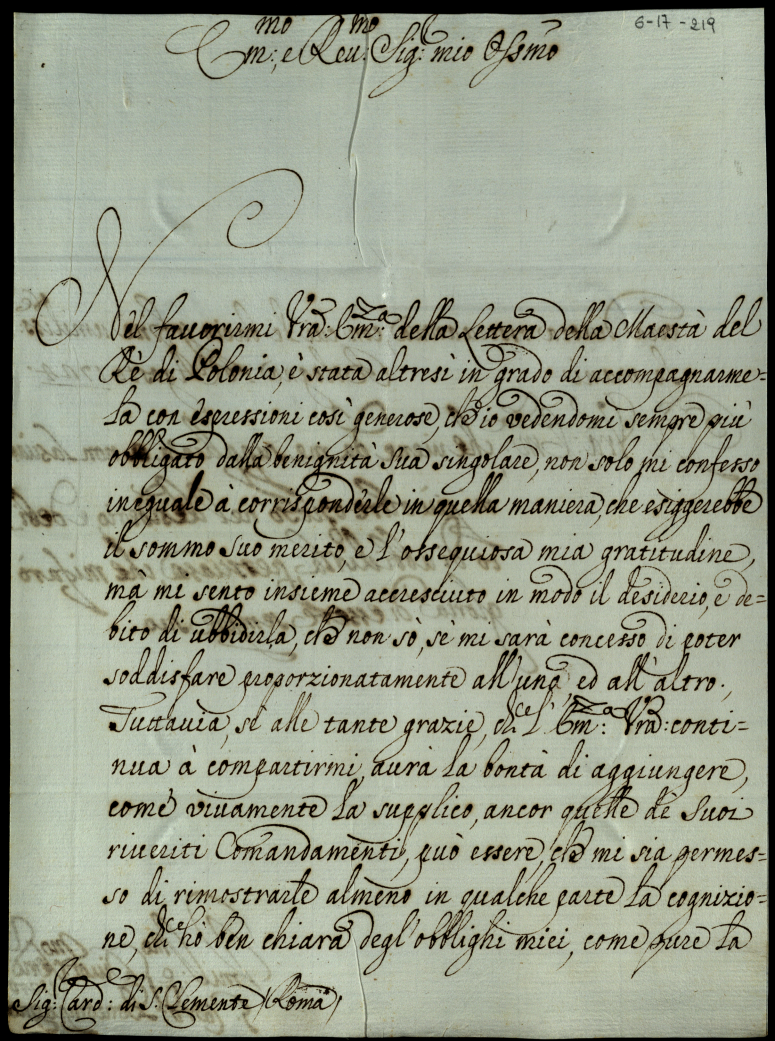 6-17-219
Em:mo e Reu:mo Sig: mio Ossmo
Nel favorirmi Vra: Em:za della Lettera della Maestà del
Rè di Polonia, è stata altresì in grado di accompagnarme=
la con espressioni così generose, ch'io vedendomi sempre più
obbligato dalla benignità sua singolare, non solo mi confesso
ineguale à corrisponderle in quella maniera, che esiggerebbe
il sommo suo merito, e l'ossequiosa mia gratitudine,
mà mi sento insieme accresciuto in modo il desiderio, e de=
bito di ubbidirla, che non sò, se mi sarà concesso di poter
soddisfare proporzionatamente all'uno, ed all'altro.
Tuttavia, se alle tante grazie, che l'Em:za Vra: conti=
nua à compartirmi, aurà la bontà di aggiungere,
come vivamente la supplico, ancor quelle de Suoi
riveriti Comandamenti, può essere, che mi sia permes=
so di rimostrarle almeno in qualche parte la cognizio=
ne, che hò ben chiara degl'obblighi miei, come pure la
Sig: Card: di S. Clemente (Roma)